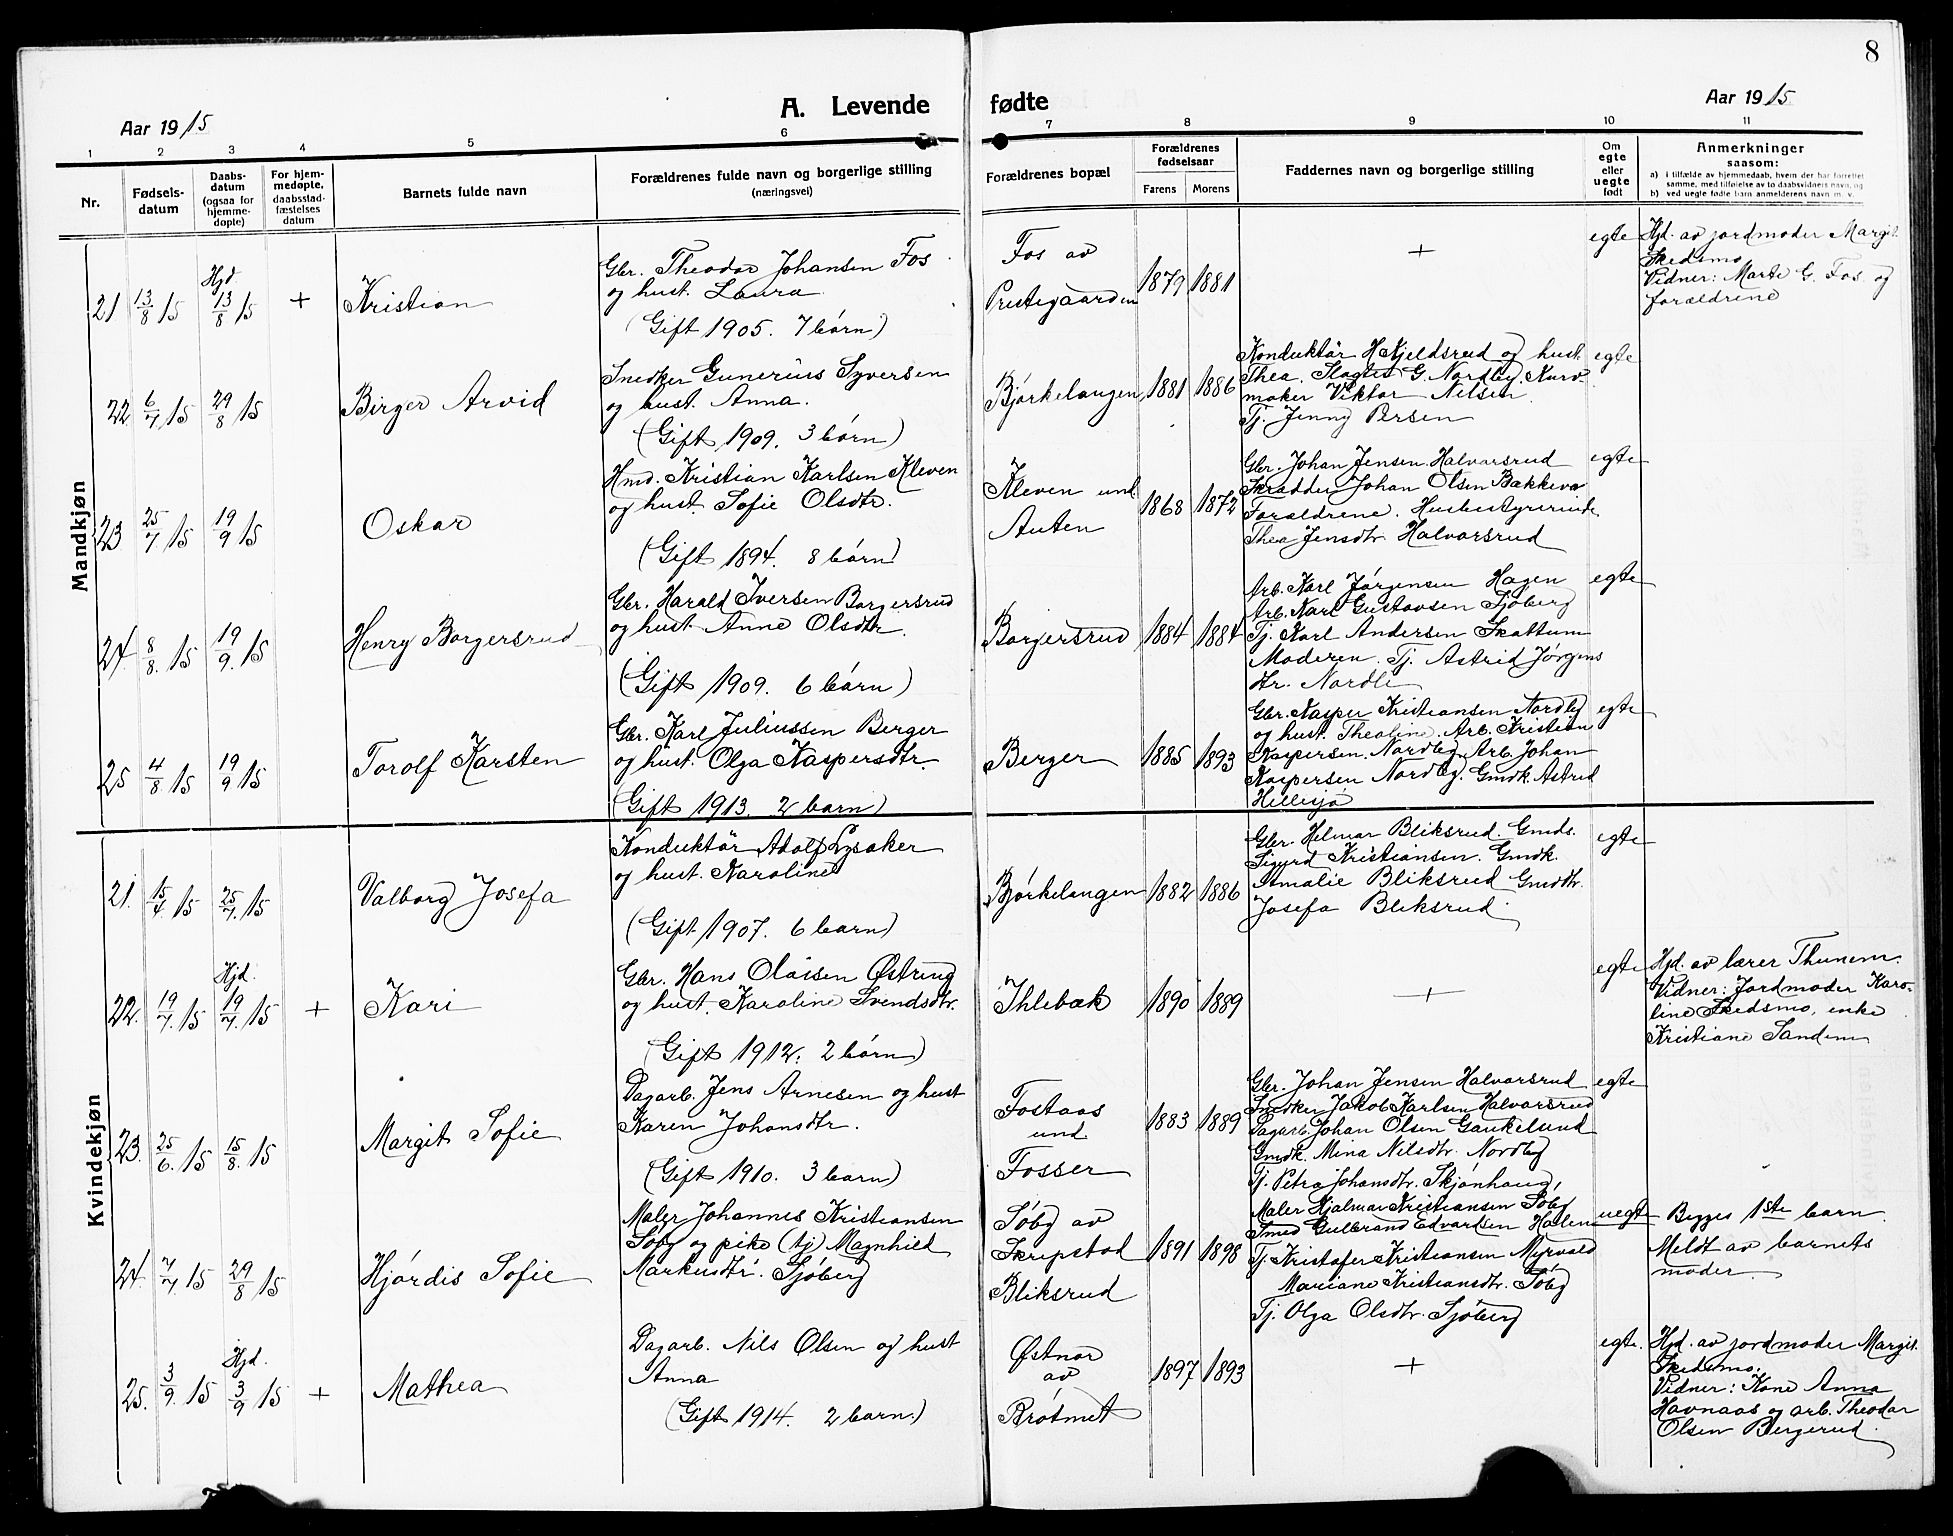 8
A. Levende fødte
Aar 1915
Aar 1915
1 2 3 4 5 6 7 8 9 10 11
Nr.
Fødsels-
datum
Daabs-
datum
(ogsaa for
hjemme-
døpte)
For hjem-
medøpte,
daabsstad-
fæstelses
datum
Barnets fulde navn
Forældrenes fulde navn og borgerlige stilling
(næringsvei)
Forældrenes bopæl
Forældrenes
fødselsaar
Farens Morens
Faddernes navn og borgerlige stilling
Om
egte
eller
uegte
født
Anmerkninger
saasom:
a) i tilfælde av hjemmedaab, hvem der har forrettet
samme, med tilføielse av to daabsvidners navn, og
b) ved uegte fødte barn anmelderens navn m. v.
Mandkjøn
21 13/8 15 Hjd. 13/8 15 + Kristian
Gbr. Theodor Johansen Fos
og hust. Laura
(Gift 1905. 7 børn)
Fos av
Prestegaarden
1879 1881
+
egte
Hjd. av jordmoder Margit
Skedsmo
Vidner: Marte G. Fos og
forældrene
22 6/7 15 29/8 15 Birger Arvid
Snedker Gunerius Syversen
og hust. Anna.
(Gift 1909. 3 børn)
Bjørkelangen 1881 1886
Konduktør H. Kjeldsrud og hust.
Thea. Slagter G. Nordby. Kurv-
maker Viktor Nilsen
Tj. Jenny Persen
egte
23 25/7 15 19/9 15 Oskar
Hmd. Kristian Karlsen Kleven
og hust. Sofie Olsdtr.
(Gift 1894. 8 børn)
Kleven und.
Auten
1868 1872
Gbr. Johan Jensen Halvorsrud
Skrædder Johan Olsen Bakkevo
Forældrene. Husbestyrerinde
Thea Jensdtr. Halvorsrud
egte
24. 8/8. 15 19/9. 15 Henry Borgersrud
Gbr. Harald Iversen Borgersrud
og hust. Anne Olsdtr.
(Gift 1909. 6 børn)
Borgersrud 1884 1884
Arb. Karl Jørgensen Hagen
Arb. Karl Gustavsen Sjøberg
Tj. Karl Andersen Skattum
Moderen. Tj. Astrid Jørgens
dtr. Nordli
egte
25 4/8. 15 19/9 15 Torolf Karsten
Gbr. Karl Juliussen Berger
og hust. Olga Kaspersdtr.
(Gift 1913. 2 barn)
Berger 1885 1893
Gbr. Kasper Kristiansen Nordby
og hust. Theoline. Arb. Kristian
Kaspersen Nordby. Arb. Johan
Kaspersen Nordby. Gmdk. Astrid
Hellesjø
egte
Kvindekjøn
21. 15/4. 15 25/7. 15 Valborg Josefa
Konduktør Adolf Lysaker
og hust. Karoline
(Gift 1907. 6 barn)
Bjørkelangen 1882 1886
Gbr. Helmar Bliksrud. Gmds.
Sigurd Kristiansen. Gmdk.
Amalie Bliksrud Gmddtr.
Josefa Bliksrud
egte
22. 19/7. 15 Hjd. 19/7. 15 + Kari
Gbr. Hans Olaisen Østring
og hust. Karoline Svendsdtr.
(Gift 1912. 2 børn)
Ihlebæk 1890 1889
+
egte
Hjd. av lærer Thunem.
Vidner: Jordmoder Karo-
line Skedsmo, enke
Kristiane Sandem
23. 25/6. 15 15/8. 15 Margit Sofie
Dagarb. Jens Arnesen og hust
Karen Johansdtr.
(Gift 1910. 3 barn)
Fostaas
und.
Fosser
1883 1889
Gbr. Johan Jensen Halvorsrud
Snedker Jakob Karlsen Halvorsrud
Dagarb. Johan Olsen Gaukelund
Gmdk. Mina Nilsdtr. Nordby
Tj. Petra Johansdtr. Skjønhaug,
egte
24. 7/7 15 29/8 15 Hjørdis Sofie
Maler Johannes Kristiansen
Søby og pike (tj) Magnhild
Markusdtr. Sjøberg
Søby av
Skrepstad
Bliksrud
1891 1898
Maler Hjalmar Kristiansen Søby
Smed Gulbrand Edvardsen Holen
Tj. Kristofer Kristiansen Myrvold
Mariane Kristiansdtr. Søby
Tj. Olga Olsdtr. Sjøberg
uegte
Begges 1ste barn.
Meldt av barnets
moder.
25. 3/9. 15 Hjd. 3/9 15 + Mathea
Dagarb. Nils Olsen og hust
Anna
(Gift 1914. 2 barn.)
Østnor
av
Brøtmet
1897 1893
+
egte.
Hjd. av jordmoder Margit
Skedsmo.
Vidner: Kone Anna
Havnaas og arb. Theodor
Olsen Bergerud.